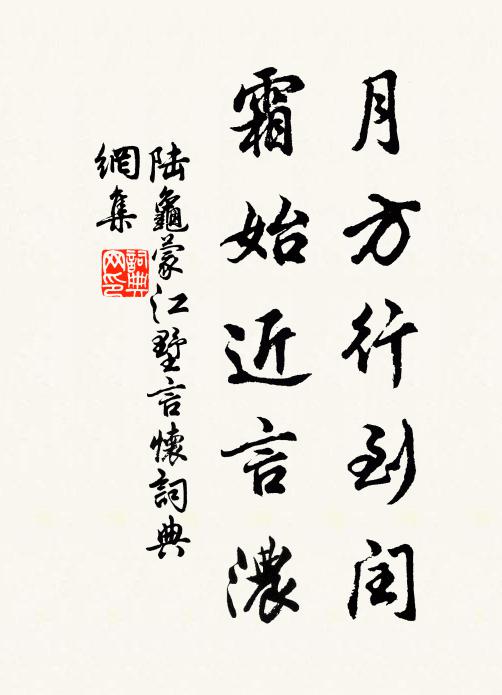 月方行到閏
霜始近言濃
陆龜蒙江墅言懷詞典
網集
詞典
网印